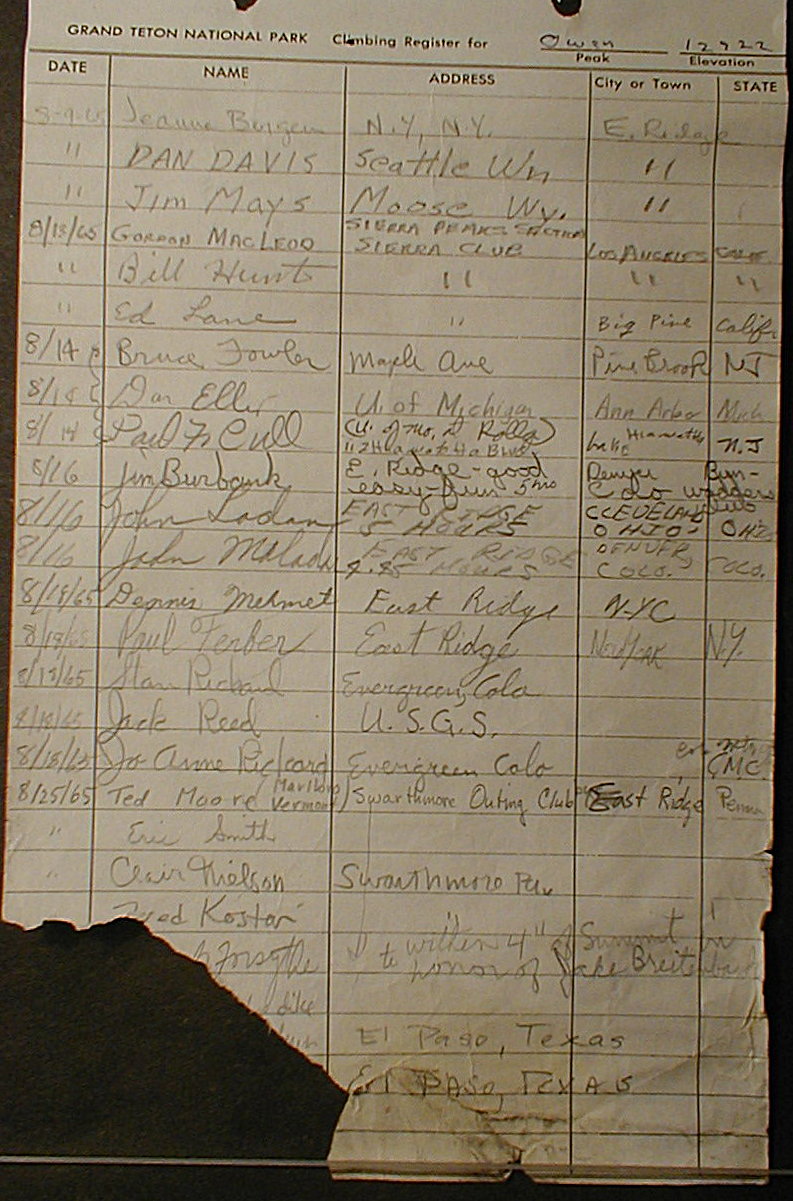 GRAND TETON NATIONAL PARK Climbing Register for Owen 12922
Peak Elevation
DATE NAME ADDRESS City or Town STATE
8-9-65 Jeanne Bergen N.Y, N.Y. E. Ridge
" DAN DAVIS Seattle Wn "
" Jim Mays Moose Wy. "
SIERRA PEAKS SECTION
8/13/65 GORDON MACLEOD SIERRA CLUB LOS ANGELES CALIF.
" Bill Hunt " " "
" Ed Lane " Big Pine Calif.
8/14 Bruce Fowler Maple Ave Pine Brook NJ
8/14 Dan Eller U. of Michigan Ann Arbor Mich
(U. of Mo. at Rolla)
8/14 Paul Cull Blvd Hiawatha N.J
8/16 Jim Burbank E. Ridge - good Denver Bun-
easy-fun 5 hrs Colo wadders
club
8/16 John EAST RIDGE CLEVELAND
5 HOURS OHIO- OHIO
8/16 John EAST RIDGE DENVER,
4.45 HOURS COLO. COLO.
8/18/65 Dennis Mehmet East Ridge NYC
8/18/65 Paul Ferber East Ridge New York N.Y.
8/18/65 Stan Rickard Evergreen, Colo
8/18/65 Jack Reed U.S.G.S.
8/18/65 Jo Anne Rickard Evergreen Colo CMC
8/25/65 Ted Moore (Marlboro Vermont) Swarthmore Outing Club East Ridge Penna
" Eric Smith
" Clair Nielson Swarthmore Pa
Fred Kostar "
Forsythe " to within 4" of Summit in
honor of Jake Breitenbach
dike
El Paso, Texas
El PASO, TEXAS